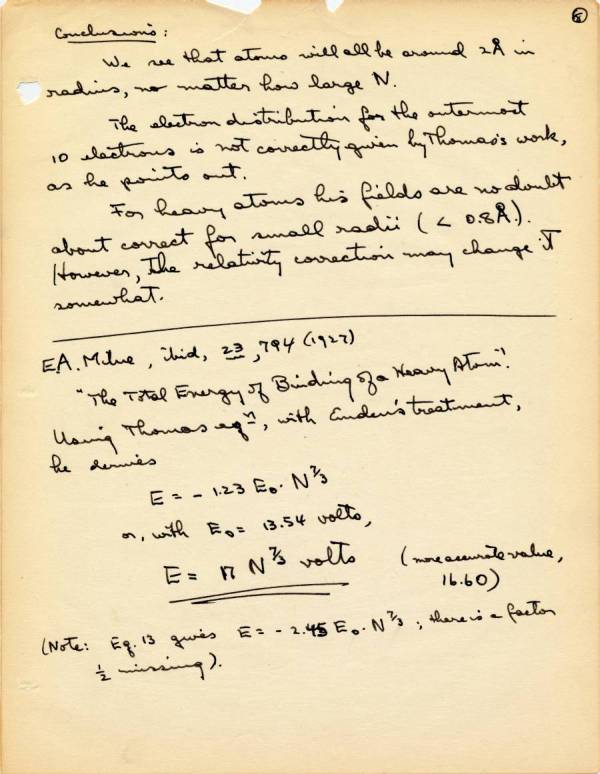 8
Conclusions:
We see that atoms will all be around 2Å in
radius, no matter how large N.
The electron distribution for the outermost
10 electrons is not correctly given by Thomas's work,
as he points out.
For heavy atoms his fields are no doubt
about correct for small radii (< 0.8Å.).
However, the relativity correction may change it
somewhat.
E.A. Milne, ibid, 23, 794 (1927)
"The Total Energy of Binding of a Heavy Atom".
Using Thomas eqⁿ, with Emden's treatment,
he derives
E = - 1.23 E₀. N^7/3
or, with E₀ = 13.54 volts,
E = 17 N^7/3 volts (more accurate value,
16.60)
(Note: Eq. 13 gives E = - 2.45 E₀. N^7/3; there is a factor
½ missing).